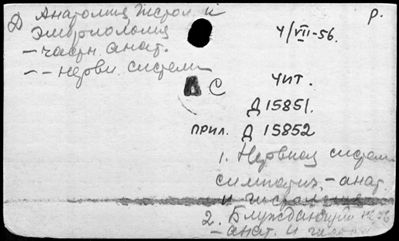 Д Анатомия, гистол. и
Эмбриология
- частн. анат.
- - нервн. система
р.
4/VII-56.
А С
чит.
Д 15851.
прил. Д 15852
1. Нервная систем
симпатич. - анат.
и гистология
2. Блуждающий нерв
- анат. и гистол